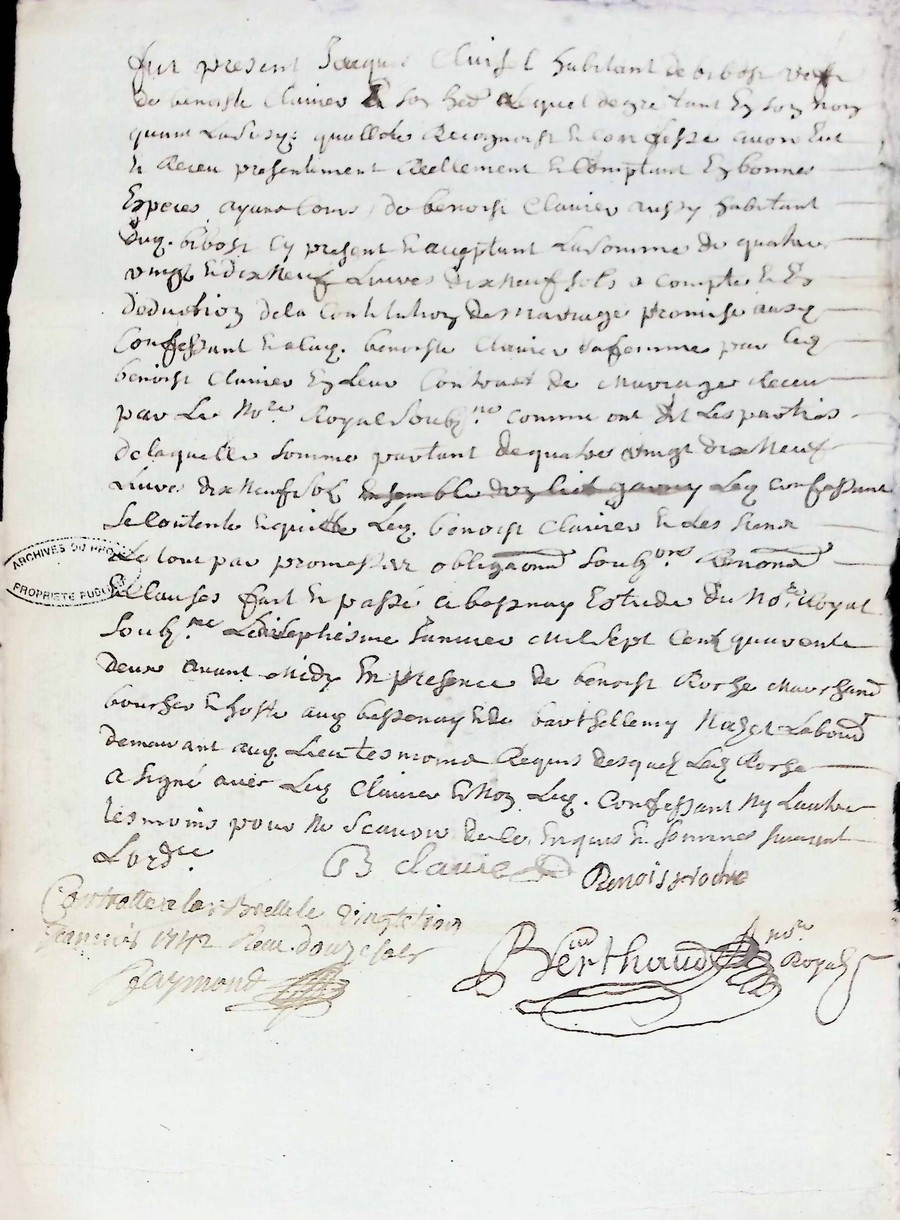 fut present Jacques Clairsel habitant de bibost
de benoiste Clairier & son hed. lequel de gré tant en son nom
quen lad. quallité Recognoist et Confesse avoir Eut
et Receu presentement Reellement et Comptant En bonnes
Especes ayant Cours, de benoist Clairier aussy habitant
dud. bibost Cy present et aceptant La Somme de quatre
vingt et dix Neuf Livres dix Neuf sols a Compte et En
deduction de la Constitution de Mariage promise aud.
Confessant et a lad. benoiste Clairier sa femme par led.
benoist Clairier En leur Contract de Mariage Receu
par Le No.re Royal Soub.né comme ont dit Les parties
de laquelle somme partant de quatre vingt dix Neuf
Livres dix Neuf sols ensemble d'un lict garny Led. Confessant
Se Contente et quitte Led. benoist Clairier et Les Siens
Le tout par promesses obliga.ons Soub.ons Renon.ons
et Clauses fait et passé a bessenay Estude du No.re Royal
Soub.né Le dixseptiesme Janvier Mil Sept Cent quarente
deux avant Midy En presence de benoist Roche Marchand
boucher et hoste aud. bessenay et de barthellemy Labour.
demeurant aud. Lieu tesmoins Requis desquels Led. Roche
a signé avec Led. Clairier et Non Led. Confessant Ny Lautre
tesmoins pour Ne Scavoir de ce Enquis et Sommés suivant
L'ord.ce
B Clairier
Benoist roche
Controllé a larBrelle le vingt
Janvier 1742 Receu douze sols
Raymond
Berthaud no.re
Royal
ARCHIVES DU RHÔNE
PROPRIETE PUBLIQUE